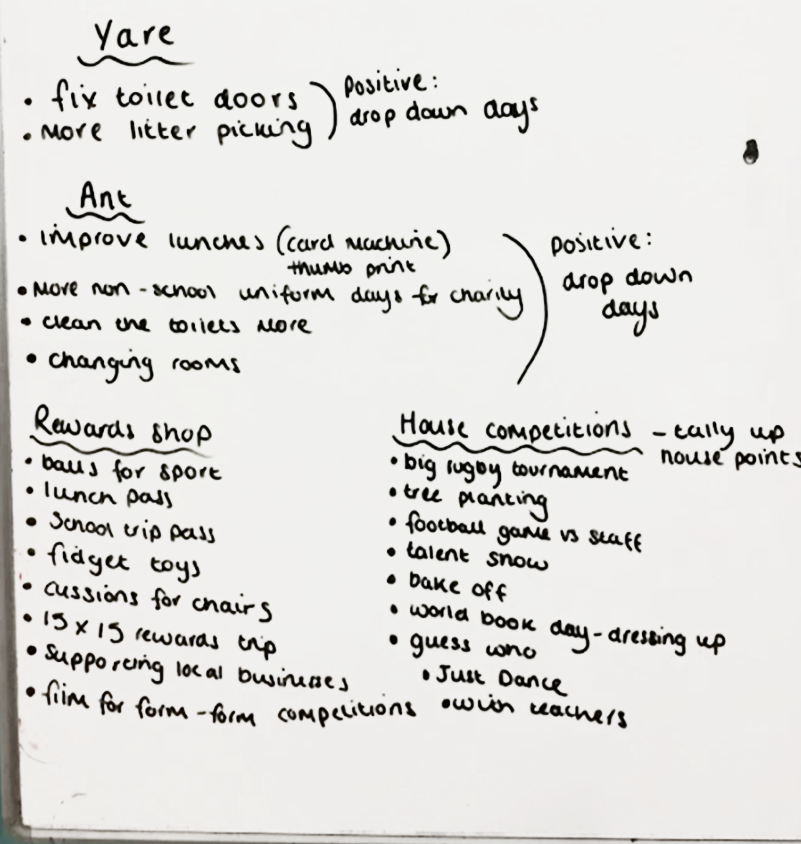 Yare
• fix toilet doors
• More litter picking
Positive:
drop down days
Ant
• improve lunches (card machine)
thumb print
• More non-school uniform days for charity
• clean the toilets more
• changing rooms
Positive:
drop down
days
Rewards shop
• balls for sport
• lunch pass
• school trip pass
• fidget toys
• cussions for chairs
• 15 x 15 rewards trip
• supporting local businesses
• film for form-form competitions
House competitions - tally up
house points
• big rugby tournament
• tree planting
• football game vs staff
• talent show
• bake off
• world book day - dressing up
• guess who
• Just Dance
• with teachers